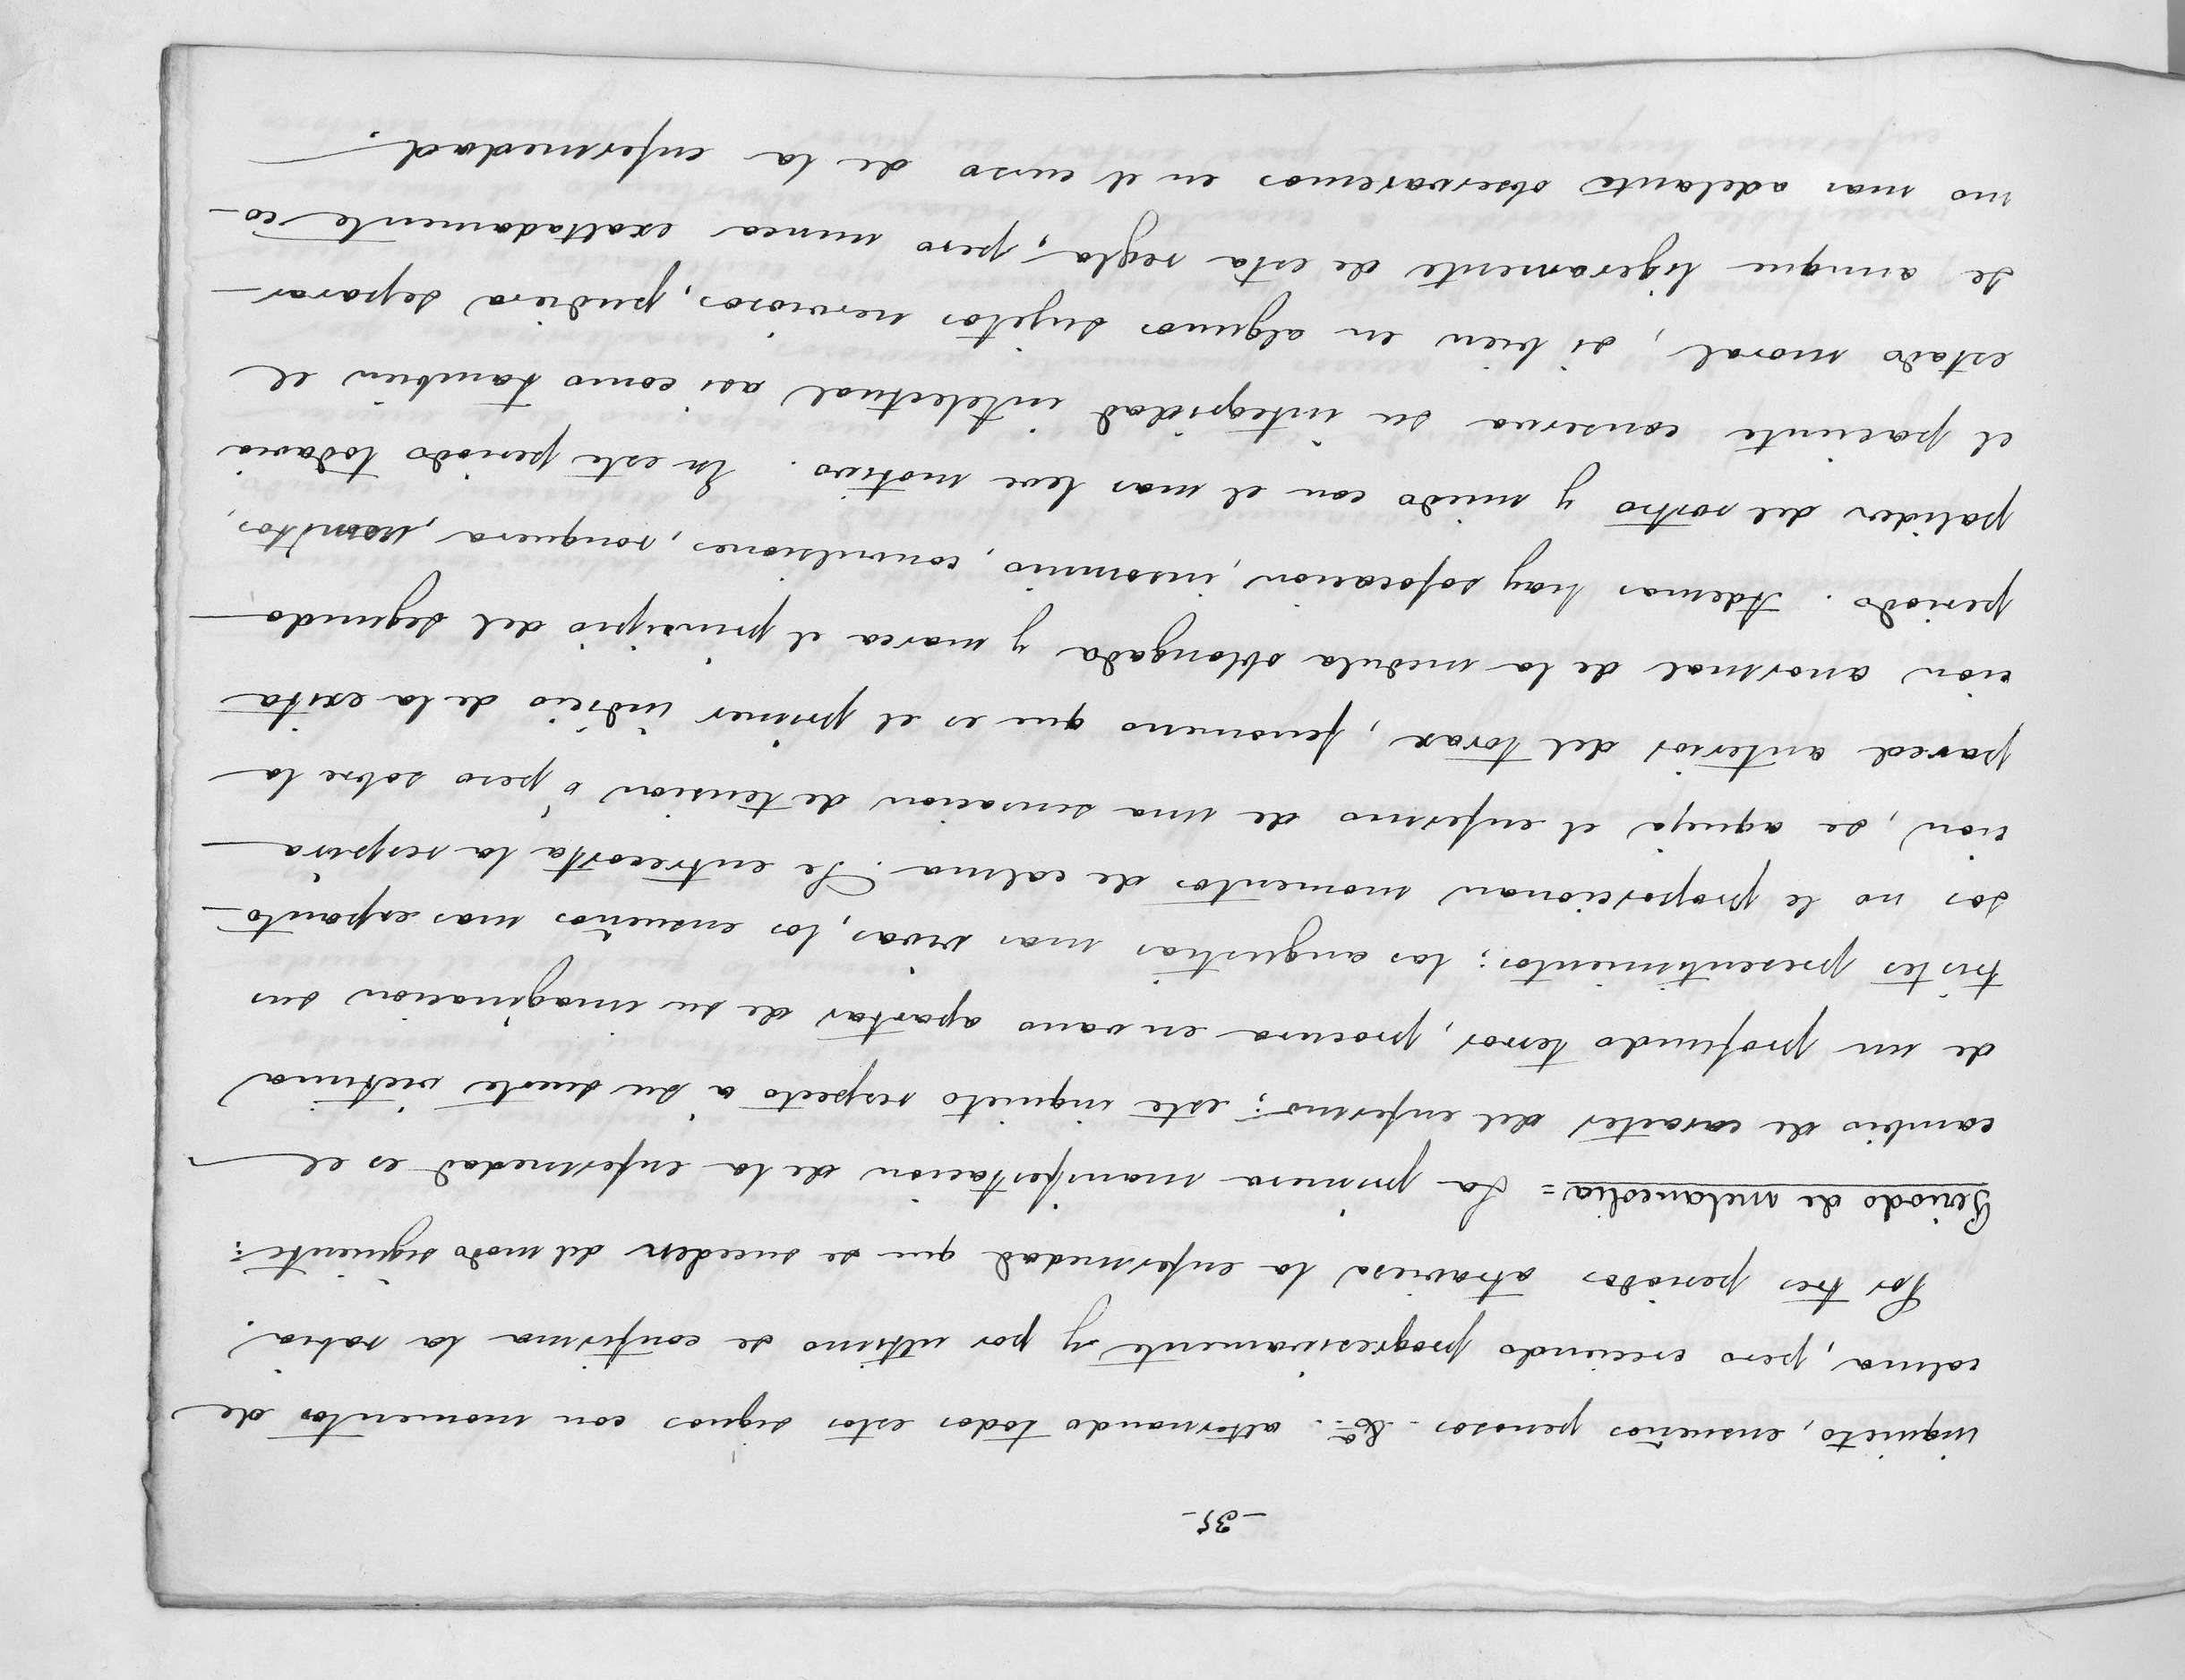 -35-
inquieto, ensueños penosos - &ª. alternando todos estos signos con momentos de
calma, pero creciendo progresivamente y por ultimo se confirma la rabia.
Por tres periodos atraviesa la enfermedad que se suceden del modo siguiente:
Periodo de melancolia = La primera manifestacion de la enfermedad es el
cambio de caracter del enfermo; este inquieto respecto á su suerte victima
de un profundo terror, procura en vano apartar de su imaginacion sus
tristes presentimientos; las angustias mas vivas, los ensueños mas espanto-
sos no le proporcionan momentos de calma. Se entrecorta la respira-
cion, se aqueja el enfermo de una sensacion de tension ó peso sobre la
pared anterior del torax, fenomeno que es el primer indicio de la exita
cion anormal de la medula oblongada y marca el principio del segundo
periodo. Ademas hay sofocacion, insomnio, convulsiones, ronquera, vomitos,
palidez del rostro y miedo con el mas leve motivo. En este periodo todavia
el paciente conserva su integridad intelectual asi como tambien el
estado moral, si bien en algunos sujetos nerviosos, pudiera separar-
se aunque ligeramente de esta regla, pero nunca exaltadamente co-
mo mas adelante observaremos en el curso de la enfermedad.